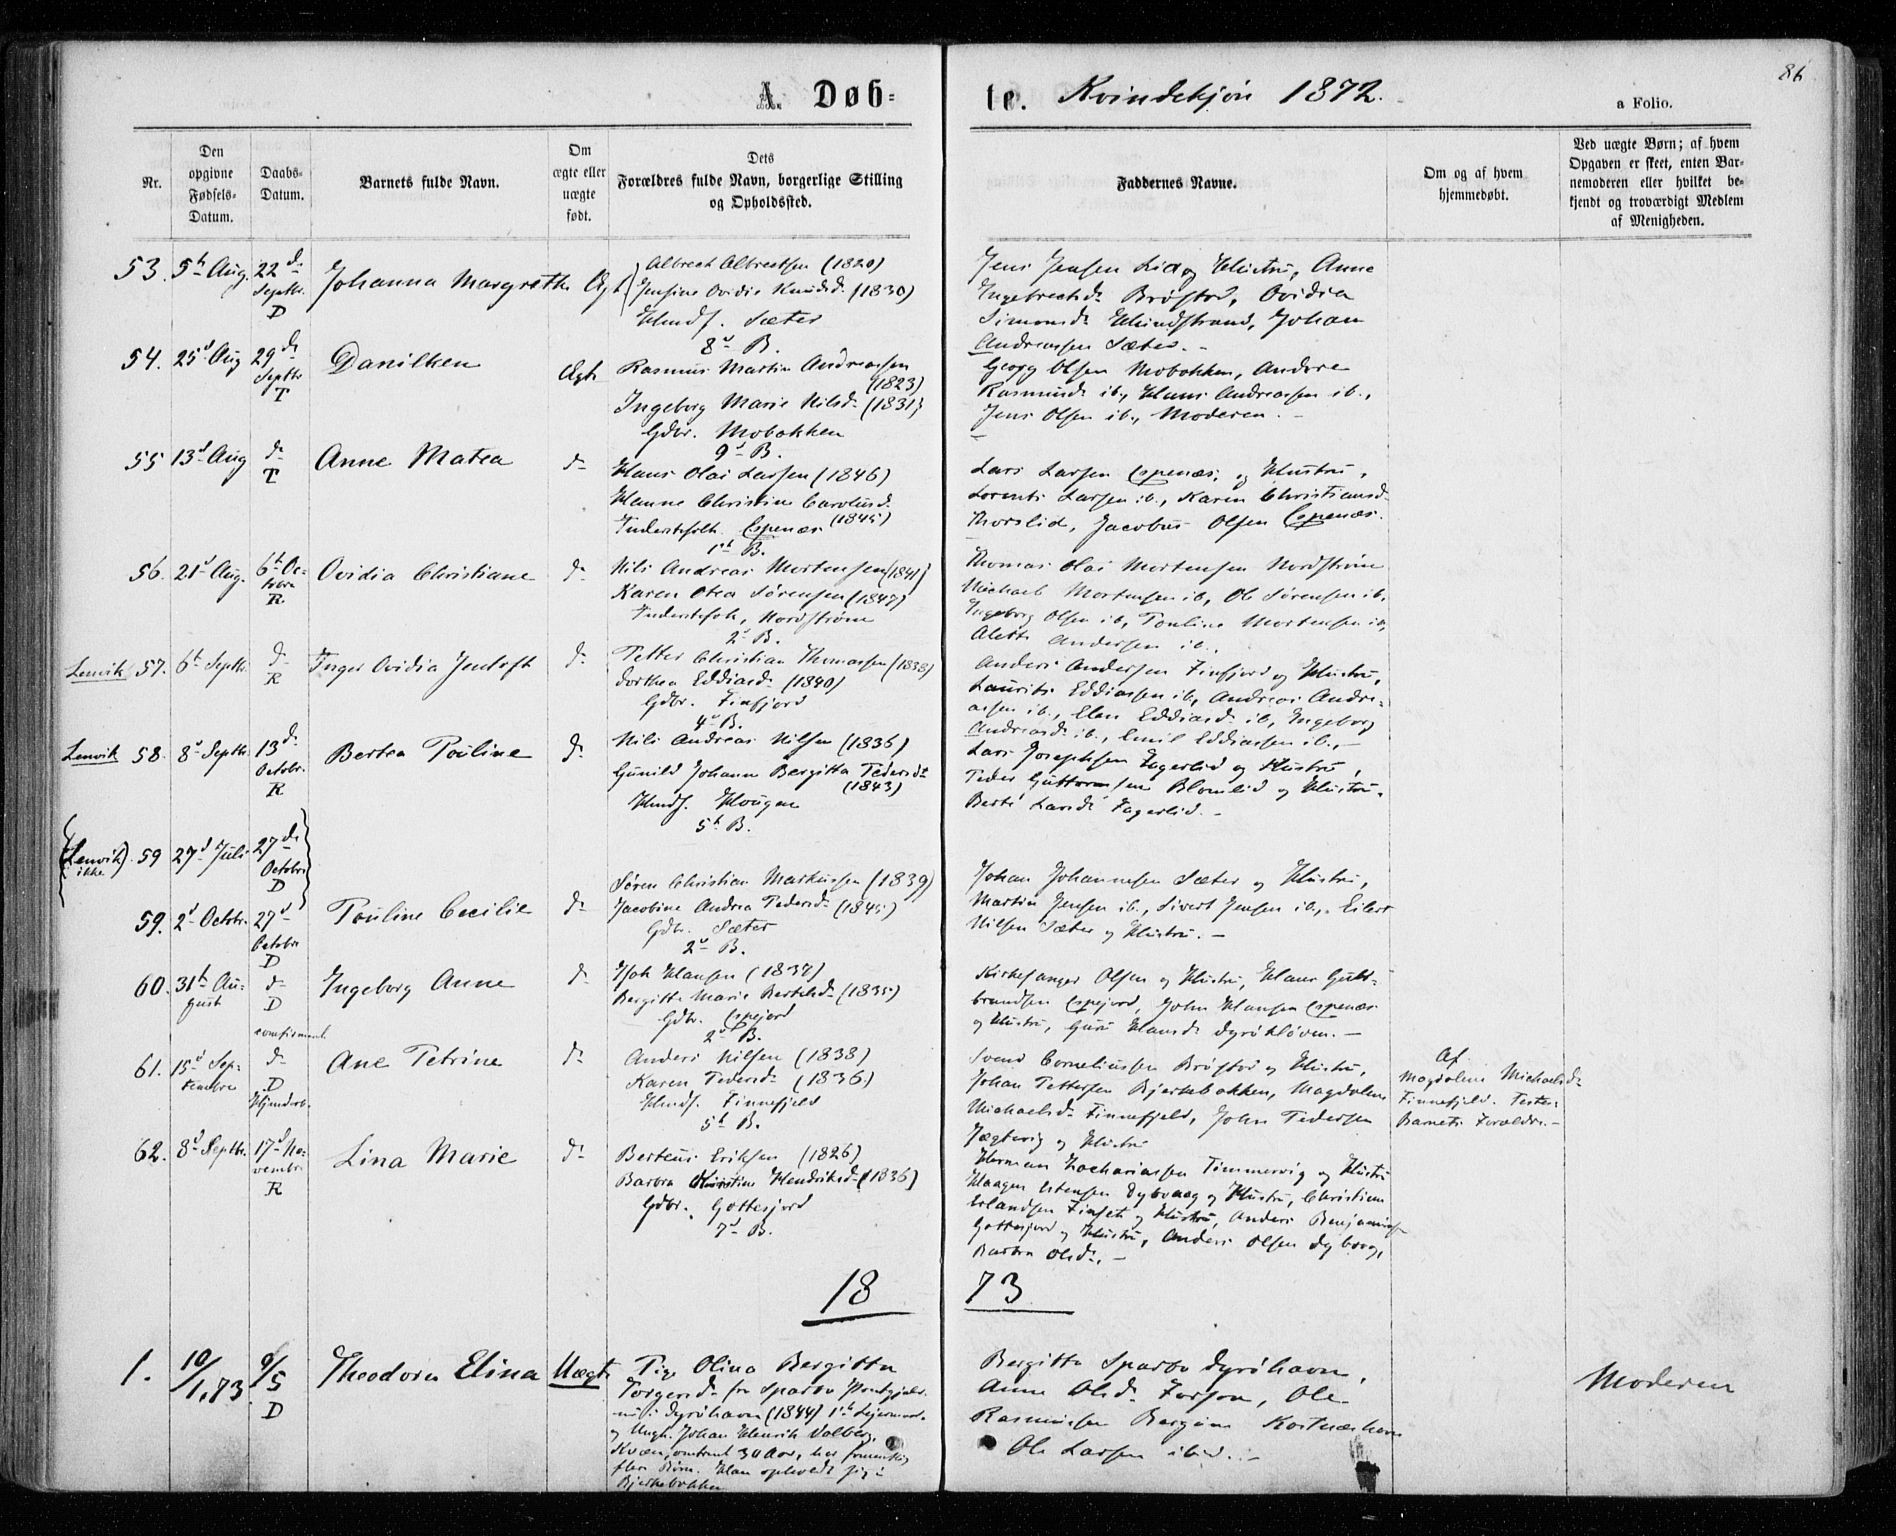 A. Døb-
te. Kvindekjön 1872.
86
a Folio.
Nr.
Den opgivne Fødsels-Datum.
Daabs-Datum.
Barnets fulde Navn.
Om ægte eller uægte født.
Dets Forældres fulde Navn, borgerlige Stilling og Opholdssted.
Faddernes Navne.
Om og af hvem hjemmedøbt.
Ved uægte Børn; af hvem Opgaven er skeet, enten Barnemoderen eller hvilket bekjendt og troværdigt Medlem af Menigheden.
53. 5t Aug. 22d Septbr. D
Johanna Margrethe Ægt
Albrect Albrectsen (1820)
Jensine Ovidie Knudsd. (1830)
Huusf. Sæter
8d B.
Jens Jensen Lia og Hustru, Anne
Ingebrectsd. Brøstad, Ovidia
Simonsd. Hundstrand, Johan
Andreassen Sæter.
54. 25d Aug 29d Septbr T
Danilken Ægte
Rasmus Martin Andreassen (1823)
Ingeborg Marie Nilsd. (1831)
Gdbr. Mobakken
9d B.
Georg Olsen Mobakken, Andore
Rasmusd. ib., Hans Andreassen ib.,
Jens Olsen ib., Moderen.
55 13d Aug do T
Anne Matea do
Hans Olai Larsen (1846)
Hanne Christine Carolusd. (1845)
Inderstfolk Espenæs
1st B.
Lars Larsen Espenæs og Hustru,
Lorents Larsen ib., Karen Christiansd.
Thorslid, Jacobus Olsen Espenæs.
56. 21d Aug. 6t Octobre R
Ovidia Christiane do
Nils Andreas Mortensen (1841)
Karen Otea Sørensen (1847)
Inderstfolk, Nordstrøm
2d B.
Thomas Olai Mortensen Nordstrøm
Michael Mortensen ib, Ole Sørensen ib,
Ingeborg Olsen ib, Pouline Mortensen ib,
Andersen ib.,
Lenvik 57. 6t Septbr. do R
Inger Ovidia Jentoft do
Petter Christian Thomassen (1838)
Dorthea Eddiasd. (1840)
Gdbr. Finfjord
4d B.
Anders Andersen Finfjord og Hustru,
Laurits Eddiassen ib, Andreas Andre-
assen ib., Elen Eddiasd. ib, Ingeborg
Andreasd. ib., Emil Eddiassen ib.,
Lenvik 58. 8d Septbr. 13d Octobr. R
Bertea Pouline do
Nils Andreas Nilsen (1836)
Gunild Johanna Bergitta Pedersd. (1843)
Huusf. Hougen
5t B.
Lars Josephsen Fagerlid og Hustru,
Peder Guttormsen Blomlid og Hustru.
Berit Larsd. Fagerlid.
(Lenvik) ikke 59 27d Juli 27d Octobr. D
59. 2d Octobr. 27d Octobr D
Pouline Cecilie do
Søren Christian Markussen (1839)
Jacobine Andrea Pedersd. (1845)
Gdbr. Sæter
2d B.
Johan Johannesen Sæter og Hustru,
Martin Jensen ib., Sivert Jensen ib., Eilert
Nilsen Sæter og Hustru.
60. 31t August do D
comfirmeret
Ingeborg Anne do
Isak Hansen (1837)
Bergitte Marie Bertelsd. (1835)
Gdbr. Espejord
2d B.
Kirkesanger Olsen og Hustru, Hans Guld-
brandsen Espejord, John Hansen Espenæs
og Hustru, Guru Hansd. Dyrökløven.
61. 15d Septembre do D
Hjemdøb.
Ane Petrine do
Anders Nilsen (1838)
Karen Pedersd. (1836)
Huusf. Finnefjeld
5t B.
Svend Corneliussen Brøstad og Hustru,
Johan Pettersen Bjerkebakken, Magdalena
Michaelsd. Finnefjeld, John Pedersen
Jægtvig og Hustru
Af
Magdalene Michaelsd.
Finnefjeld. Testes:
Barnets Forældre.
62. 8d Septbr. 17d Novembr R
Lina Marie do
Berteus Eriksen (1826)
Barbra Christine Hendriksd. (1836)
Gdbr. Gottesjord
7d B.
Herman Zachariassen Timmervig og Hustru
Haagen Estensen Dybvaag og Hustru, Christian
Erlandsen Finset og Hustru, Anders Benjaminsen
Gottesjord og Hustru, Anders Olsen Dybvag,
Barbra Olsd.
18 73
1. 10/1.73 9/5 D
Theodora Elina Uægte
Pige Olina Bergitta
Torgersd. fra Sparbo
nu i Dyröhavn (1844) 1st Leiermaal.
og Ungk. Johan Henrik Valberg,
Kvæn, omtrent 30 Aar, har formentlig
flere Børn. Han opholdt sig i
Bjerkebakken
Bergitte Sparbo Dyröhavn,
Anne Olsd. Forson, Ole
Rasmussen Bergum Kastnæshavn
Ole Larsen ibid.
Moderen